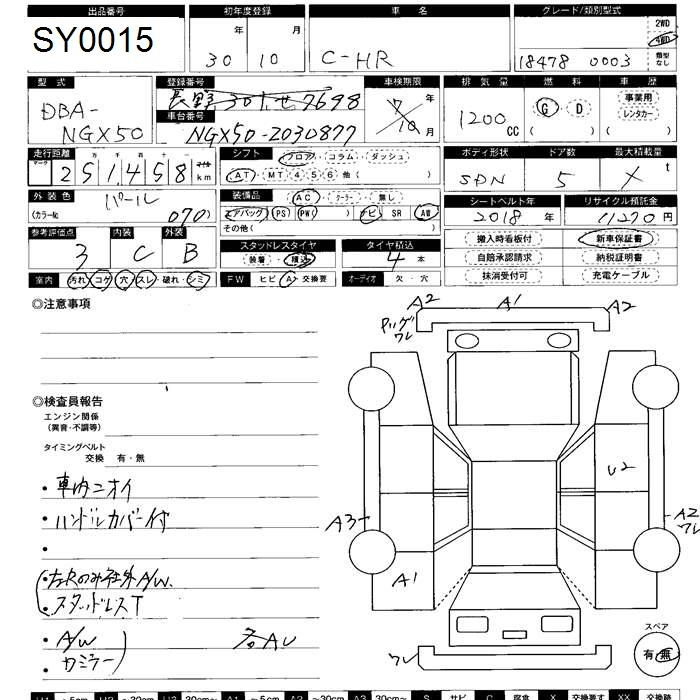 出品番号 初年度登録 車 名 グレード/類別型式
SY0015 年 月 2WD
30 10 C-HR 4WD
18478 0003 類型なし
型 式 登録番号 車検期限 排 気 量 燃 料 車 歴
DBA- 長野 301 せ 7698 7 年 事業用
NGX50 車台番号 10 月 1200 CC G・D レンタカー
NGX50-2030877 ( ) ( )
走行距離 シフト フロア・コラム・ダッシュ ボディ形状 ドア数 最大積載量
マーク 十 万 千 百 十 一 マイル
251,458 km AT・MT 4 5 6 他 ( ) SDN 5 X t
外 装 色 パール 装備品 AC・クーラー・無し シートベルト年 リサイクル預託金
(カラーNo. 070) エアバッグ PS PW ( ) ナビ SR AW 2018年 11270円
その他 ( )
参考評価点 内装 外装 スタッドレスタイヤ タイヤ積込 搬入時看板付 新車保証書
3 C B 装着・積込 4 本 自賠承認請求 納税証明書
室内 汚れ・コゲ・穴・スレ・破れ・シミ FW ヒビ・A・交換要 オーディオ 欠・穴 抹消受付可 充電ケーブル
◎注意事項
A2 A1 A2
ワレ
◎検査員報告
エンジン関係
(異音・不調等)
タイミングベルト
交換 有・無
U2
・車内ニオイ
・ハンドルカバー付
A3 A2
ワレ
・
・右Rのみ社外A/W.
・スタッドレスT
A1
・A/W
・カミラー
各AU
ワレ
スペア
有・無
U1 ~5cm U2 ~20cm U3 20cm~ A1 ~5cm A2 ~30cm A3 30cm~ S サビ C 腐食 X 交換要す XX 交換跡